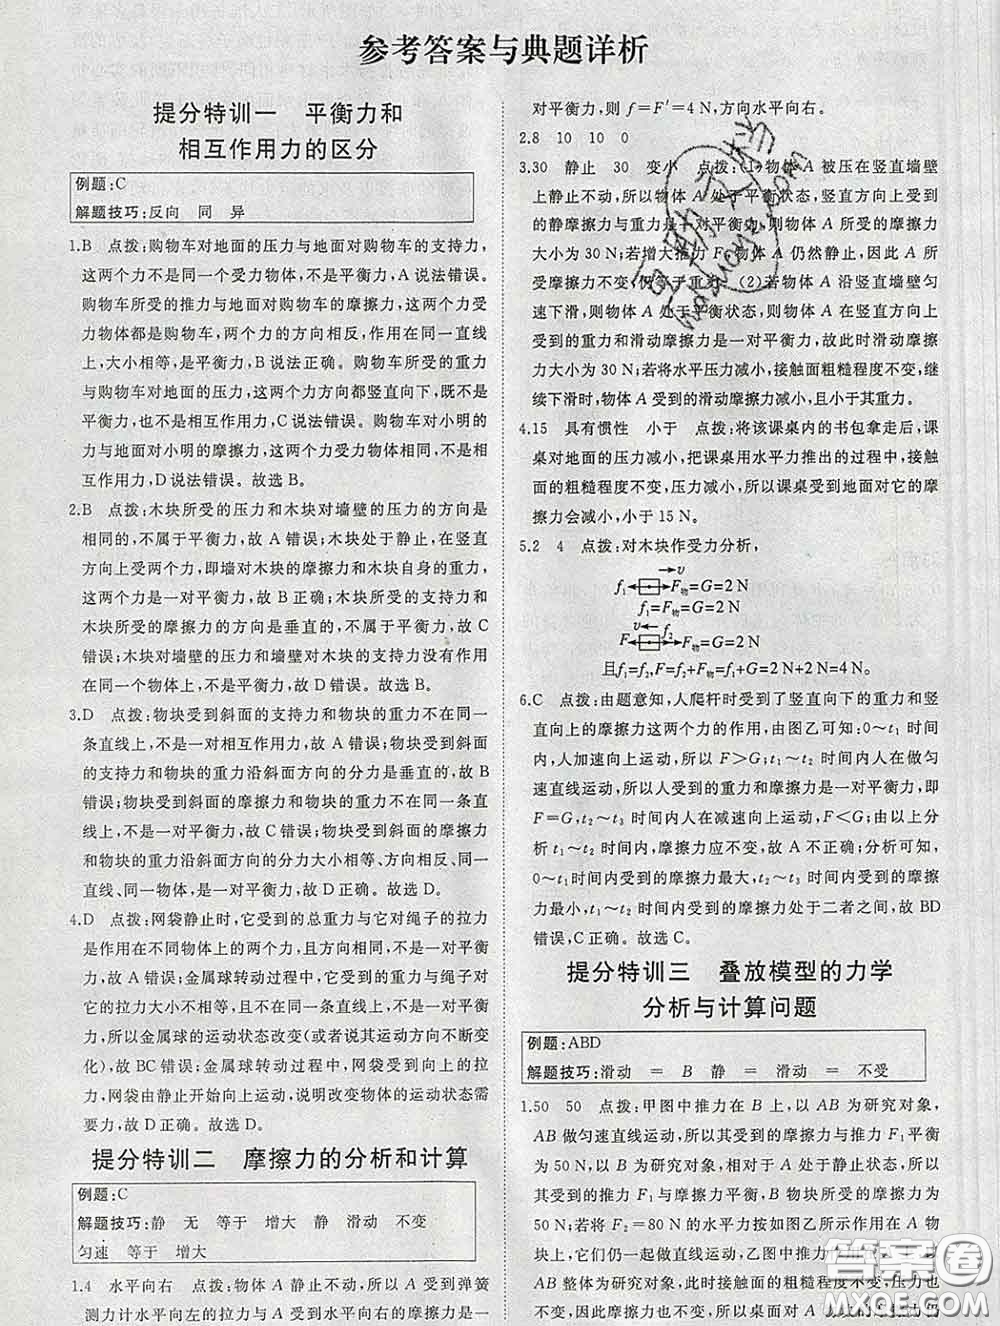 参考答案与典题详析
提分特训一 平衡力和
相互作用力的区分
例题:C
解题技巧:反向 同 异
1.B 点拨:购物车对地面的压力与地面对购物车的支持力,
这两个力不是同一个受力物体,不是平衡力,A说法错误。
购物车所受的推力与地面对购物车的摩擦力,这两个力受
力物体都是购物车,两个力的方向相反,作用在同一直线
上,大小相等,是平衡力,B说法正确。购物车所受的重力
与购物车对地面的压力,这两个力方向都竖直向下,既不是
平衡力,也不是相互作用力,C说法错误。购物车对小明的
力与小明对购物车的摩擦力,这两个力受力物体不同,不是相
互作用力,D说法错误。故选B。
2.B 点拨:木块所受的压力和木块对墙壁的压力的方向是
相同的,不属于平衡力,故A错误;木块处于静止,在竖直方
向受力平衡,即墙对木块的摩擦力和木块自身的重力,
方向相反,为平衡力,故B正确;木块所受的支持力和
木块所受的摩擦力的方向是垂直的,不属于平衡力,故C
错误;木块对墙壁的压力和墙壁对木块的支持力没有作用
在同一个物体上,不是平衡力,故D错误。故选B。
3.D 点拨:物块受到斜面的支持力和物块的重力不在同一
条直线上,不是一对相互作用力,故A错误;物块受到斜面
的支持力和物块的重力沿斜面方向的分力是垂直的,故B
错误;物块受到斜面的摩擦力和物块的重力不在同一条直
线上,不是一对平衡力,故C错误;物块受到斜面的摩擦力
和物块的重力沿斜面方向的分力大小相等、方向相反、同一
直线、同一物体,是一对平衡力,故D正确。故选D。
4.D 点拨:网袋静止时,它受到的总重力与它对绳子的拉力
是作用在不同物体上的两个力,且方向相同,不是一对平衡
力,故A错误;金属球转动过程中,它受到的重力与绳子对
它的拉力大小不相等,且不作用在一条直线上,不是一对平衡
力,所以金属球的运动状态改变(或者说其运动方向不断变
化),故BC错误;金属球转动过程中,网袋受到向上的拉
力,网袋由静止开始向上运动,说明改变物体的运动状态需
要力,故D正确。故选D。
提分特训二 摩擦力的分析和计算
例题:C
解题技巧:静 无 等于 增大 静 滑动 不变
匀速 等于 增大
1.4 水平向右 点拨:物体A静止不动,所以A受到弹簧
测力计水平向左的拉力与A受到水平向右的摩擦力是一
对平衡力,则f=F′=4 N,方向水平向右。
2.8 10 10 0
3.30 静止 30 变小 点拨:(1)物体A被压在竖直墙壁
上静止不动,所以物体A处于平衡状态,竖直方向上受到
的静摩擦力与重力是一对平衡力,则物体A所受的摩擦力
大小为30 N;若增大推力F,物体A仍然静止,因此A所
受摩擦力不变,仍等于重力。(2)若物体A沿竖直墙壁匀
速下滑,则物体A处于平衡状态,则物体A在竖直方向上
受到的重力和滑动摩擦力是一对平衡力,故此时滑动摩擦
力大小为30 N;若将水平压力减小,接触面粗糙程度不变,继
续下滑时,物体A受到的滑动摩擦力减小,且小于其重力。
4.15 具有惯性 小于 点拨:将该课桌内的书包拿走后,课
桌对地面的压力减小,把课桌用水平力推出的过程中,接触
面的粗糙程度不变,压力减小,所以课桌受到地面对它的摩
擦力会减小,小于15 N。
5.2 4 点拨:对木块作受力分析,
v
f₁ F物=G=2 N
f₁=G=2 N
v f₂
F F物=G=2 N
且f₁=f₂,F=f₂+F物=f₁+G=2 N+2 N=4 N。
6.C 点拨:由题意知,人爬杆时受到了竖直向下的重力和竖
直向上的摩擦力这两个力的作用,由图乙可知:0～t₁时间
内,人加速向上运动,所以F>G;t₁～t₂时间内人在做匀
速直线运动,所以人受到的重力和摩擦力是一对平衡力,即
F=G,t₂～t₃时间内人在减速向上运动,F<G;由以上分
析t₁～t₂时间内,摩擦力应不变,故A不正确;分析可知,
0～t₁时间内受到的摩擦力最大,t₂～t₃时间内受到的摩擦
力最小,t₁～t₂时间内受到的摩擦力处于二者之间,故BD
错误,C正确。故选C。
提分特训三 叠放模型的力学
分析与计算问题
例题:ABD
解题技巧:滑动 = B 静 = 滑动 = 不受
1.50 50 点拨:甲图中推力在B上,以AB为研究对象,
AB做匀速直线运动,所以其受到的摩擦力与推力F₁平衡
为50 N,以B为研究对象,相对于A处于静止状态,所以
其受到的推力F₁与摩擦力平衡,B物块所受的摩擦力为
50 N;若将F₂=80 N的水平力按如图乙所示作用在A物
块上,它们仍一起做直线运动,乙图中推力
AB整体为研究对象,此时接触面的粗糙程度不变,压力也
不变,因此摩擦力不变,所以桌面对A
答案卷
MXQE.COM